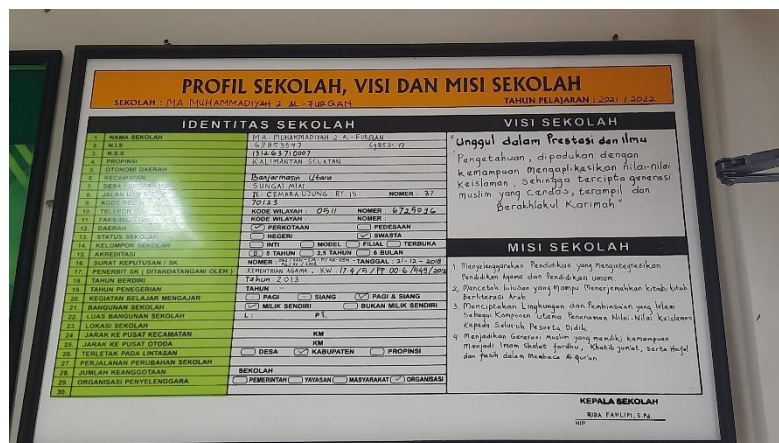 PROFIL SEKOLAH, VISI DAN MISI SEKOLAH
SEKOLAH : MA MUHAMMADIYAH 2 AL-FURQAN
TAHUN PELAJARAN : 2021 / 2022
IDENTITAS SEKOLAH
1. NAMA SEKOLAH MA MUHAMMADIYAH 2 AL-FURQAN
2. N.I.S
3. N.S.S 131263710007
4. PROPINSI KALIMANTAN SELATAN
5. OTONOMI DAERAH
6. KECAMATAN Banjarmasin Utara
7. DESA SUNGAI MIAI
8. JALAN JL. CEMARA UJUNG RT. 15 NOMER : 37
9. KODE POS 70123
10. TELEPON KODE WILAYAH : 0511 NOMER : 6725096
11. KODE WILAYAH : NOMER :
12. DAERAH PERKOTAAN PEDESAAN
13. STATUS SEKOLAH NEGERI SWASTA
14. KELOMPOK SEKOLAH INTI MODEL FILIAL TERBUKA
15. AKREDITASI B 5 TAHUN 2,5 TAHUN 6 BULAN
16. SURAT KEPUTUSAN / SK NOMER : TANGGAL : 21-12-2018
17. PENERBIT SK ( DITANDATANGANI OLEH ) KEMENTRIAN AGAMA, KW.
18. TAHUN BERDIRI Tahun 2013
19. TAHUN PENEGERIAN TAHUN -
20. KEGIATAN BELAJAR MENGAJAR PAGI SIANG PAGI & SIANG
21. BANGUNAN SEKOLAH MILIK SENDIRI BUKAN MILIK SENDIRI
22. LUAS BANGUNAN SEKOLAH L : P :
23. LOKASI SEKOLAH
24. JARAK KE PUSAT KECAMATAN KM
25. JARAK KE PUSAT OTODA KM
26. TERLETAK PADA LINTASAN DESA KABUPATEN PROPINSI
27. PERJALANAN PERUBAHAN SEKOLAH
28. JUMLAH KEANGGOTAAN SEKOLAH
29. ORGANISASI PENYELENGGARA PEMERINTAH YAYASAN MASYARAKAT ORGANISASI
30.
VISI SEKOLAH
"Unggul dalam Prestasi dan Ilmu
Pengetahuan, dipadukan dengan
kemampuan Mengaplikasikan nilai-nilai
Keislaman, sehingga tercipta generasi
muslim yang Cerdas, terampil dan
Berakhlakul Karimah"
MISI SEKOLAH
1. Menyelenggarakan Pendidikan yang Mengintegrasikan
Pendidikan Agama dan Pendidikan umum
2. Mencetak lulusan yang mampu Menerjemahkan kitab-kitab
Berliterasi Arab
3. Menciptakan Lingkungan dan Pembiasaan yang Islami
Sebagai Komponen utama Penanaman Nilai-Nilai Keislaman
Kepada Seluruh Peserta Didik
4. Menjadikan Generasi Muslim yang memiliki kemampuan
Menjadi Imam Sholat fardhu, Khatib jum'at, serta Hafal
dan fasih dalam Membaca Al-Qur'an
KEPALA SEKOLAH
RIZA FAHLIPI, S.Pd
NIP.